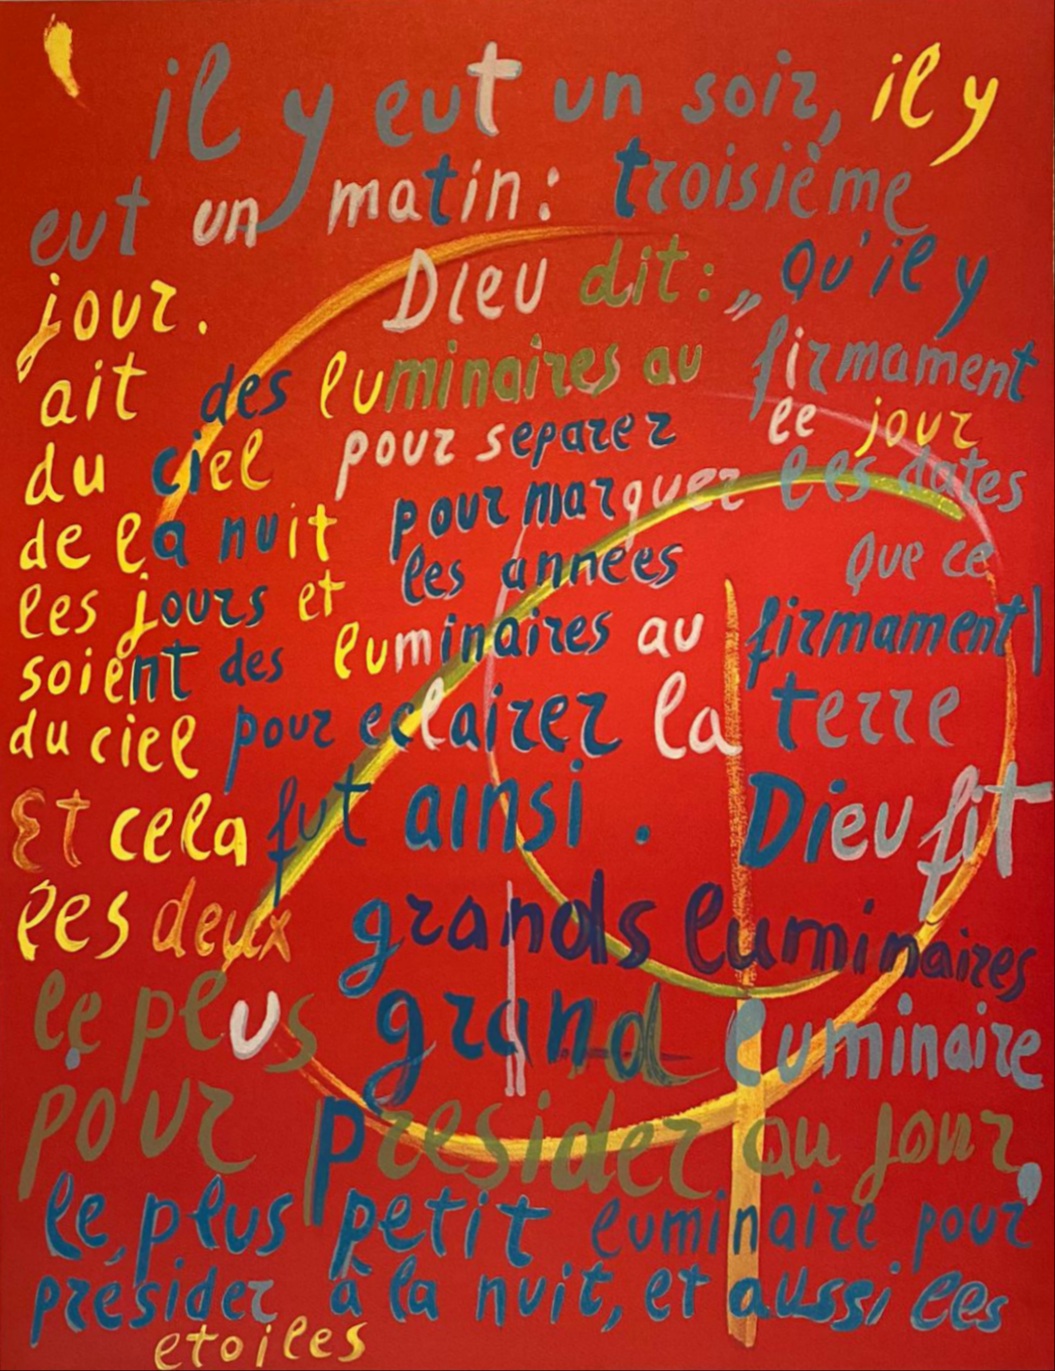 il y eut un soir, il y
eut un matin: troisième
jour. Dieu dit: „ Qu'il y
ait des luminaires au firmament
du ciel pour separer le jour
de la nuit pour marquer les dates
les jours et les années Que ce
soient des luminaires au firmament
du ciel pour eclairer la terre
Et cela fut ainsi. Dieu fit
les deux grands luminaires
le plus grand luminaire
pour presider au jour,
le plus petit luminaire pour
présider à la nuit, et aussi les
etoiles